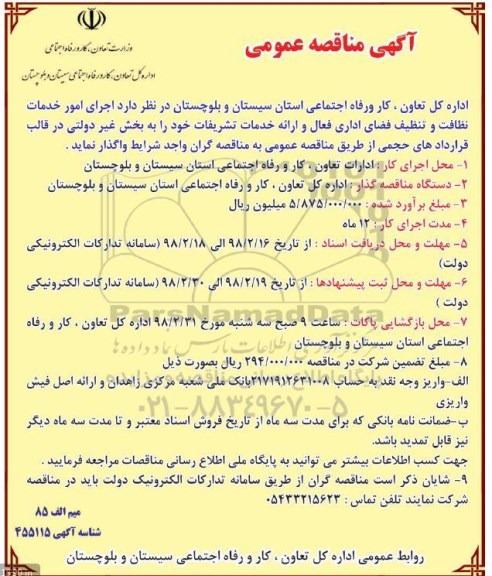 آگهی مناقصه عمومی
وزارت تعاون، کار و رفاه اجتماعی
اداره کل تعاون، کار و رفاه اجتماعی سیستان و بلوچستان
اداره کل تعاون ، کار ورفاه اجتماعی استان سیستان و بلوچستان در نظر دارد اجرای امور خدمات
نظافت و تنظیف فضای اداری فعال و ارائه خدمات تشریفات خود را به بخش غیر دولتی در قالب
قرارداد های حجمی از طریق مناقصه عمومی به مناقصه گران واجد شرایط واگذار نماید .
۱- محل اجرای کار : ادارات تعاون ، کار و رفاه اجتماعی استان سیستان و بلوچستان
۲- دستگاه مناقصه گذار : اداره کل تعاون ، کار و رفاه اجتماعی استان سیستان و بلوچستان
۳- مبلغ برآورد شده : ۵/۸۷۵/۰۰۰/۰۰۰ میلیون ریال
۴- مدت اجرای کار : ۱۲ ماه
۵- مهلت و محل دریافت اسناد : از تاریخ ۹۸/۲/۱۶ الی ۹۸/۲/۱۸ (سامانه تدارکات الکترونیکی
دولت)
۶- مهلت و محل ثبت پیشنهادها : از تاریخ ۹۸/۲/۱۹ الی ۹۸/۲/۳۰ (سامانه تدارکات الکترونیکی
دولت )
۷- محل بازگشایی پاکات : ساعت ۹ صبح سه شنبه مورخ ۹۸/۲/۳۱ اداره کل تعاون ، کار و رفاه
اجتماعی استان سیستان و بلوچستان
۸- مبلغ تضمین شرکت در مناقصه ۲۹۴/۰۰۰/۰۰۰ ریال بصورت ذیل
الف-واریز وجه نقد به حساب ۲۱۷۱۹۱۲۶۳۱۰۰۸بانک ملی شعبه مرکزی زاهدان و ارائه اصل فیش
واریزی
ب-ضمانت نامه بانکی که برای مدت سه ماه از تاریخ فروش اسناد معتبر و تا مدت سه ماه دیگر
نیز قابل تمدید باشد.
جهت کسب اطلاعات بیشتر می توانید به پایگاه ملی اطلاع رسانی مناقصات مراجعه فرمایید .
۹- شایان ذکر است مناقصه گران از طریق سامانه تدارکات الکترونیک دولت باید در مناقصه
شرکت نمایند تلفن تماس : ۰۵۴۳۳۲۱۵۶۲۳
میم الف ۸۵
شناسه آگهی ۴۵۵۱۱۵
روابط عمومی اداره کل تعاون ، کار و رفاه اجتماعی سیستان و بلوچستان
ParsNamadData
۰۲۱-۸۸۳۴۹۶۷۰-۵